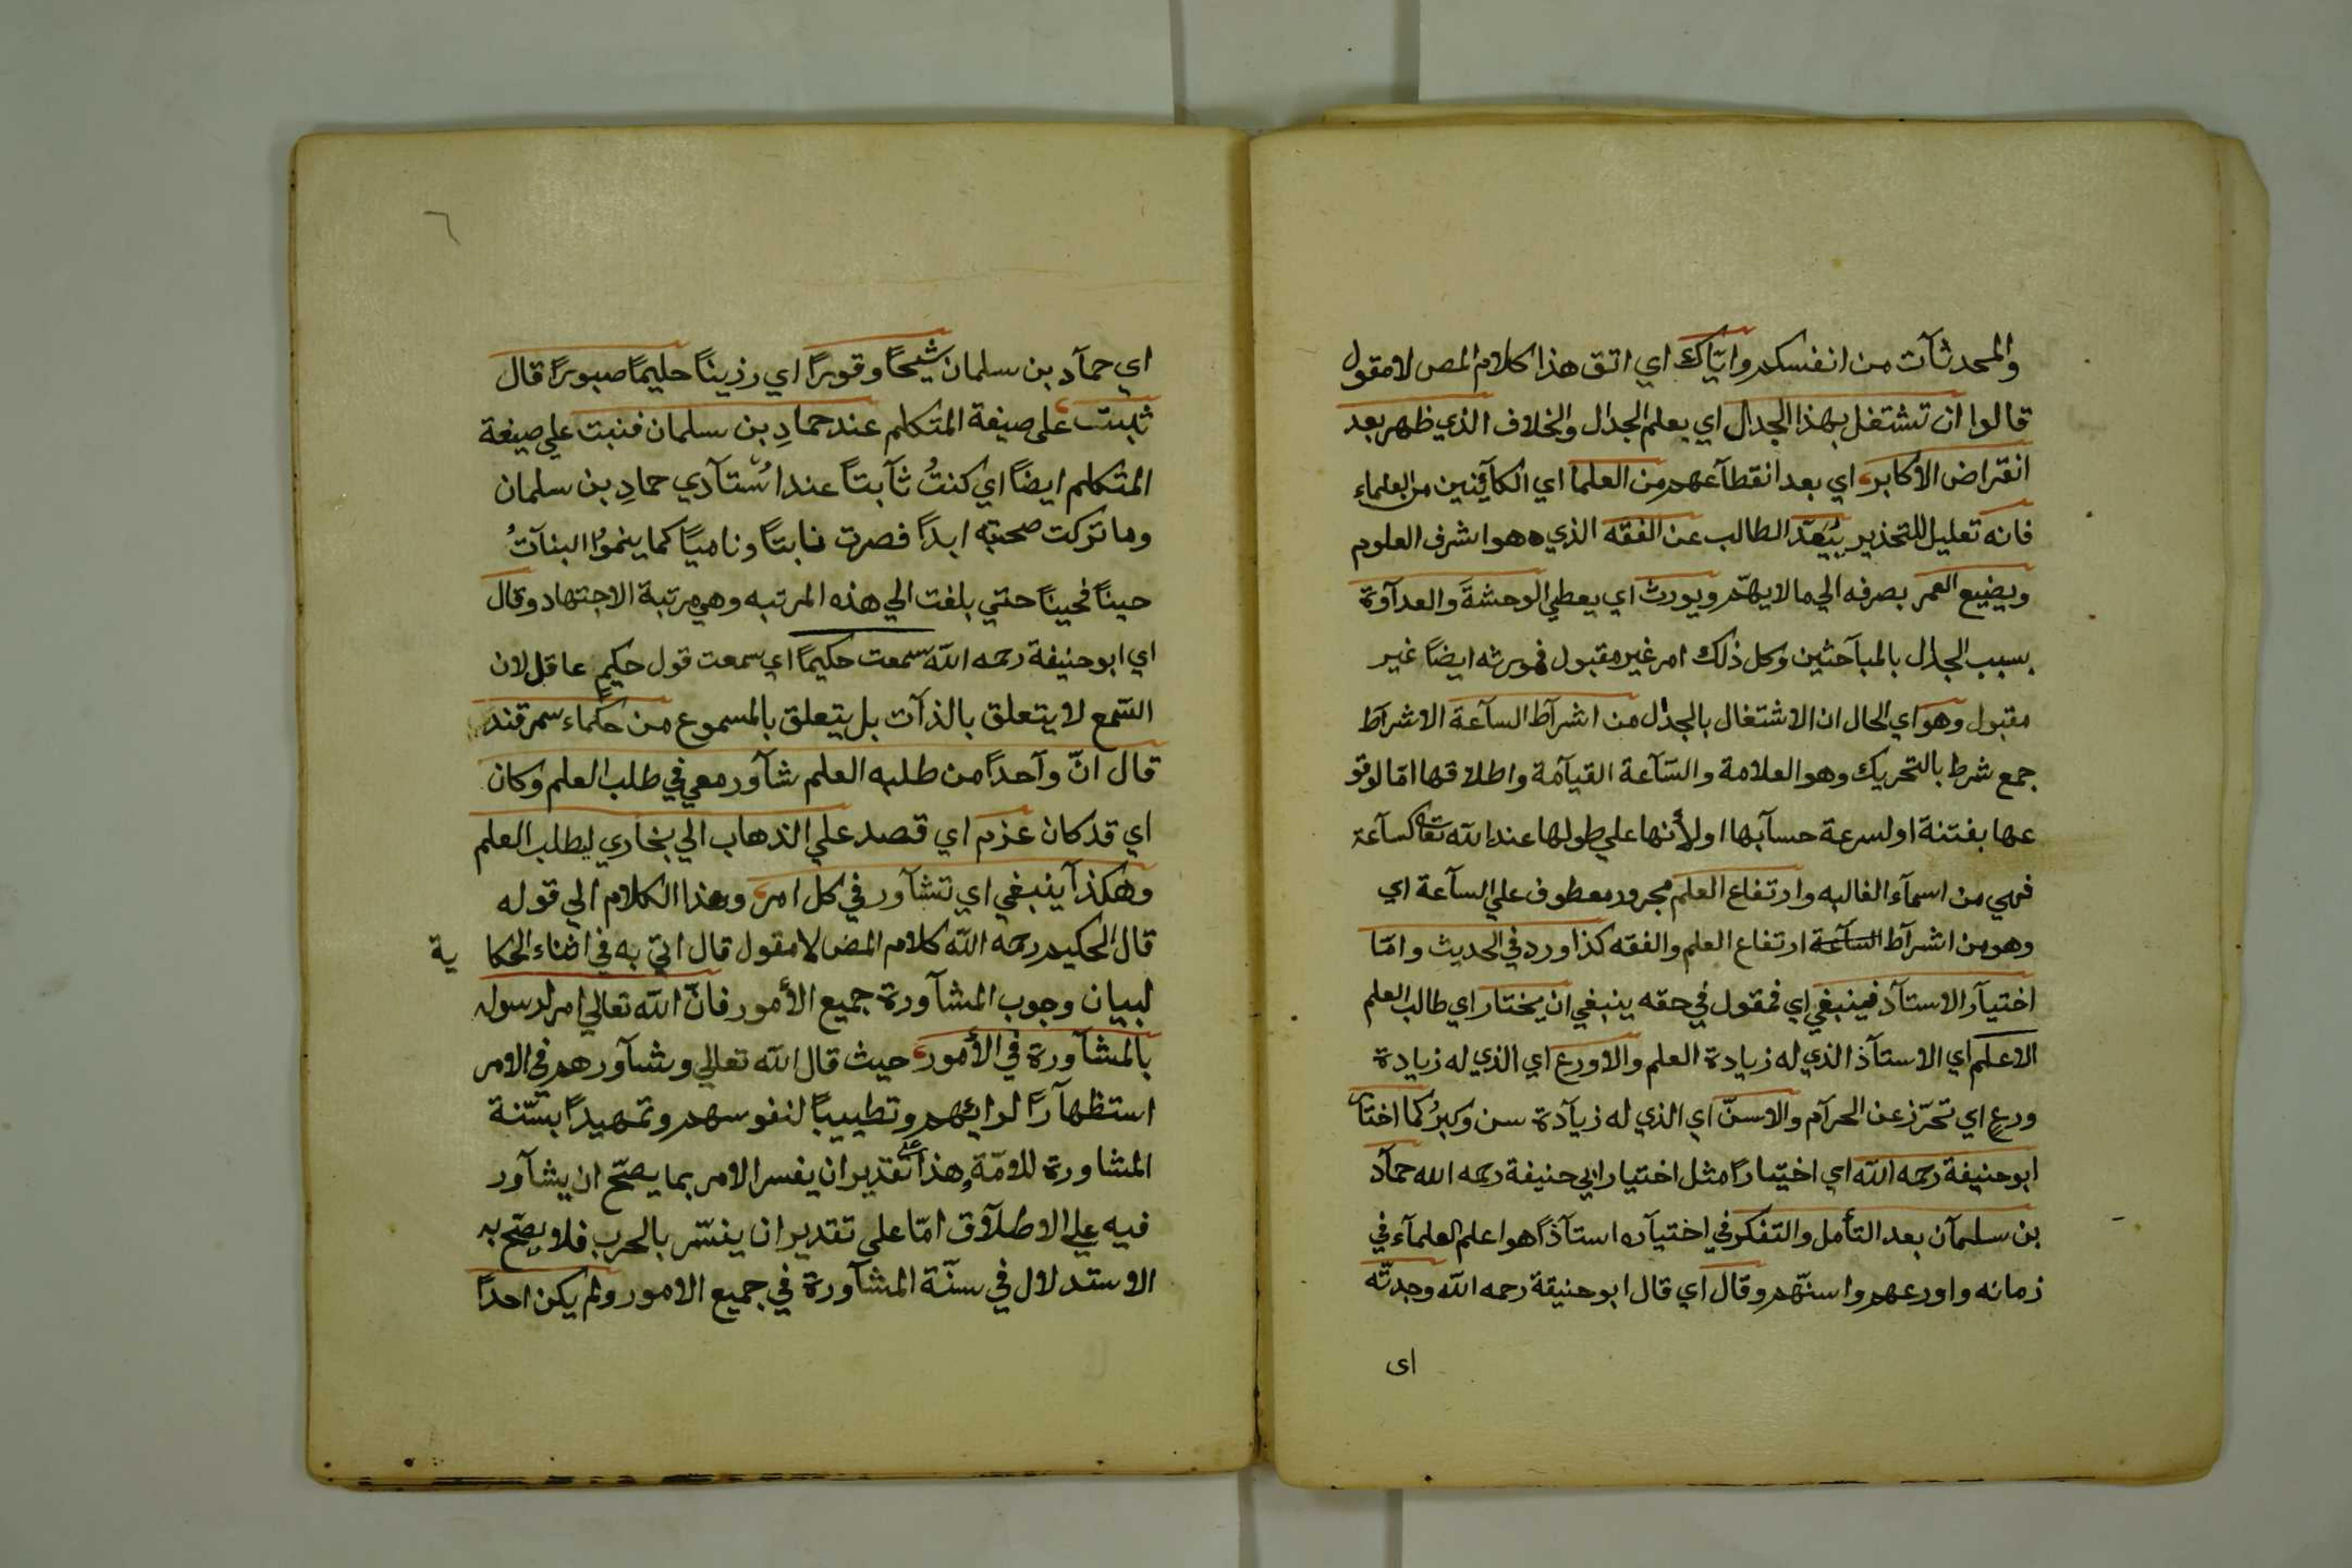 والمحدثآت من انفسكم واياك اي اتق هذا كلام المص لا مقول
قالوا ان تشتغل بهذا الجدال اي بعلم الجدال والخلاف الذي ظهر بعد
انقراض الاكابر اي بعد انقطآعهم من العلما اي الكآفنين من العلماء
فانه تعليل للتحذير يبعّد الطالب عن الفقه الذي هو اشرف العلوم
ويضيع العمر بصرفه الي مالا يهمّ ويورث اي يعطي الوحشةَ والعدآوة
بسبب الجدال بالمبآحثين وكل ذلك امر غير مقبول فمورثه ايضًا غير
مقبول وهو اي الحال ان الاشتغال بالجدال من اشرآط السآعة الاشرآط
جمع شرط بالتحريك وهو العلامة والسّآعة القيآمة واطلاقها امّا لوقو
عها بفتنة او لسرعة حسآبها او لأنها علي طولها عند الله تعالى كسآعة
فهي من اسمآء الغالبه وارتفاع العلم مجرور معطوف علي السآعة اي
وهو من اشرآط السآعة ارتفاع العلم والفقه كذا ورد في الحديث وامّا
اختيآر الاستآذ فينبغي اي فمقول في حقه ينبغي ان يختار اي طالب العلم
الاعلم اي الاستآذ الذي له زيادة العلم والاورع اي الذي له زيادة
ورعٍ اي تحرّز عن الحرآم والاسنّ اي الذي له زيآدة سن وكبرٌ كما اختار
ابو حنيفة رحمه الله اي اختيارًا مثل اختيار ابي حنيفة رحمه الله حمآد
بن سلمآن بعد التأمل والتفكر في اختيآره استآذًا هو اعلم العلمآء في
زمانه واورعهم واسنّهم وقال اي قال ابو حنيفة رحمه الله وجدتّه
اى
٦
اي حمآد بن سلمان شيخًا وقورًا اي رذينًا حليمًا صبورًا قال
ثبت على صيغة المتكلم عند حمادِ بن سلمان فنبت علي صيغة
المتكلم ايضًا اي كنتُ ثآبتاً عند اُستآدي حمادِ بن سلمان
وما تركت صحبته ابداً فصرت نابتًا وناميًا كما ينموُا النبآتُ
حينًا فحينًا حتي بلغت الي هذه المرتبه وهي مرتبة الاجتهاد وقال
اي ابو حنيفة رحمه الله سمعت حكيمًا اي سمعت قول حكيمٍ عاقل لان
السّمع لا يتعلق بالذآت بل يتعلق بالمسموع من حكماء سمرقند
قال انّ وآحداً من طلبه العلم شآور معي في طلب العلم وكان
اي قد كان عزم اي قصد علي الذهاب الي بخاري ليطلب العلم
وهكذآ ينبغي اي تشآور في كل امر وهذا الكلام الي قوله
قال الحكيم رحمه الله كلام المص لا مقول قال اتي به في اثناء الحكا ية
لبيان وجوب المشآورة جميع الأمور فانّ الله تعالي امر لرسوله
بالمشآورة في الأمور حيث قال الله تعالي وشآورهم في الامر
استظهآرًا لرائهم وتطييبًا لنفوسهم وتمهيدًا بسّنة
المشاورة للامّة هذا على تقدير ان يفسر الامر بما يصّح ان يشآور
فيه علي الاطلآق امّا على تقدير ان يفسّر بالحرب فلا يصّح به
الاستدلال في سنّة المشآورة في جميع الامور ولم يكن احداً